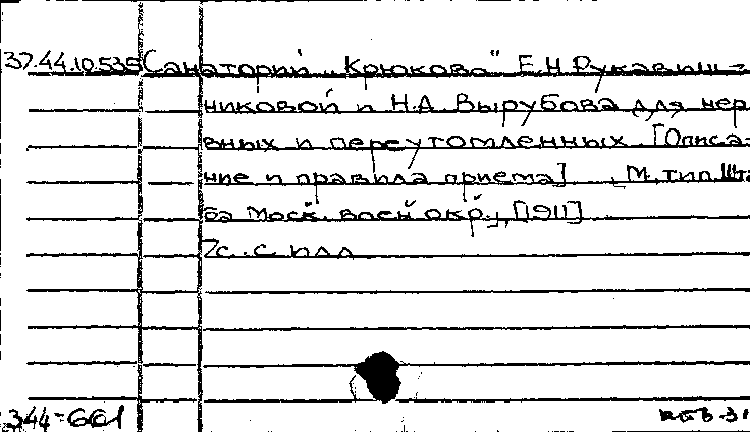 37.44.10.535 Санаторий „Крюково" Е.Н. Рукавиш=
никовой и Н.А. Вырубова для нер
вных и переутомленных. [Описа-
ние и правила приема] М, тип. Шта
ба Моск. воен окр., [1911]
7с. с илл
344-661